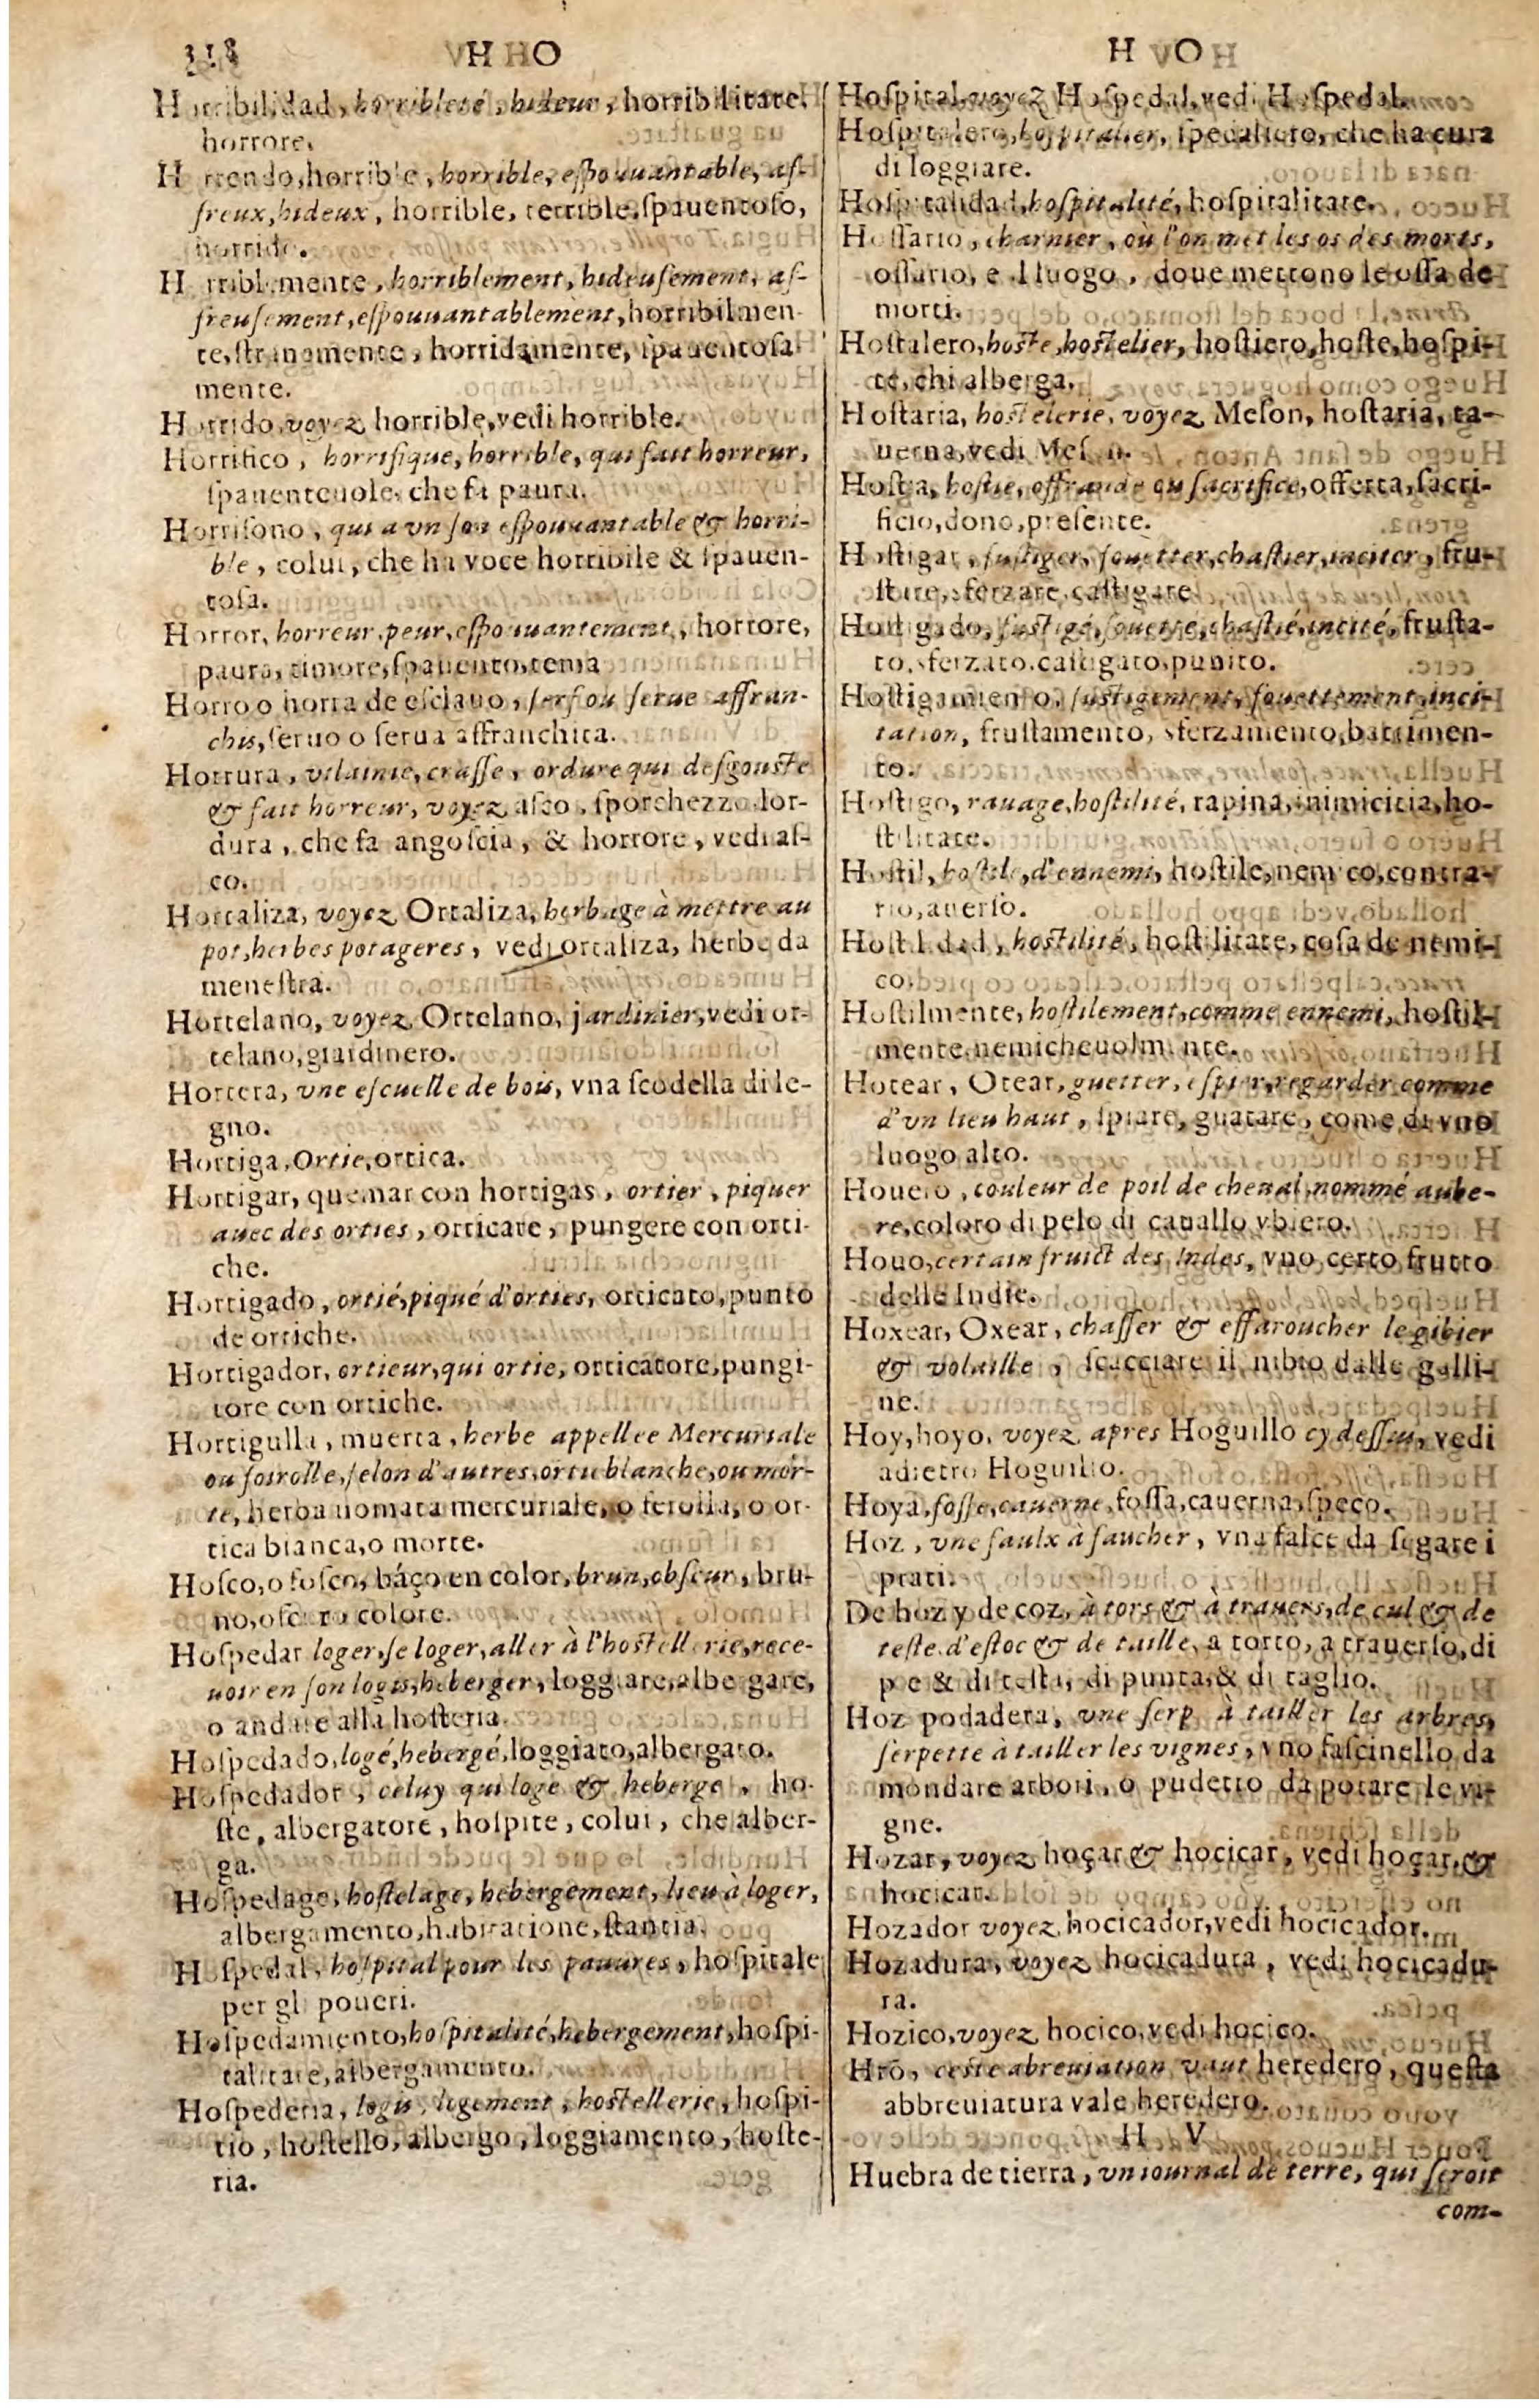 318 H O
Horribilidad, horribleté, hideur, horribilitate,
horrore.
Horrendo, horrible, horrible, espouuantable, af-
freux, hideux, horrible, terrible, spauentoso,
horrido.
Horriblemente, horriblement, hideusement, af-
freusement, espouuantablemẽt, horribilmen-
te, stranamente, horridamente, spauentosa
mente.
Horrido, voyez horrible, vedi horrible.
Horrifico, horrifique, horrible, qui fait horreur,
spauenteuole, che fa paura.
Horrisono, qui a vn son espouuantable & horri-
ble, colui, che ha voce horribile & spauen-
tosa.
Horror, horreur, peur, espouuantement, horrore,
paura, timore, spauento, tema
Horro o horra de esclauo, serf ou serue affran-
chis, seruo o serua affranchita.
Horrura, vilainie, crasse, ordure qui desgouste
& fait horreur, voyez asco, sporchezza lor-
dura, che fa angoscia, & horrore, vedi as-
co.
Hortaliza, voyez Ortaliza, herbage à mettre au
pot, herbes potageres, vedi ortaliza, herbe da
menestra.
Hortelano, voyez Ortelano, jardinier, vedi or-
telano, giardinero.
Hortera, vne escuelle de bois, vna scodella di le-
gno.
Hortiga, Ortie, ortica.
Hortigar, quemar con hortigas, ortier, piquer
auec des orties, orticare, pungere con orti-
che.
Hortigado, ortié, piqué d'orties, orticato, punto
de ortiche.
Hortigador, ortieur, qui ortie, orticatore, pungi-
tore con ortiche.
Hortigulla, muerta, herbe appellee Mercuriale
ou foirolle, selon d'autres, ortie blanche, ou mor-
te, herba nomata mercuriale, o ferolla, o or-
tica bianca, o morte.
Hosco, o fosco, báço en color, brun, obscur, bru-
no, oscuro colore.
Hospedar loger, se loger, aller à l'hostellerie, rece-
uoir en son logis, heberger, loggiare, albe gare,
o andare alla hosteria.
Hospedado, logé, hebergé, loggiato, albergato.
Hospedador, celuy qui loge & heberge, ho-
ste, albergatore, hospite, colui, che alber-
ga.
Hospedage, hostelage, hebergement, lieu à loger,
albergamento, habitatione, stantia.
Hospedal, hospital pour les pauures, hospitale
per gli poueri.
Hospedamiento, hospitalité, hebergement, hospi-
talitate, albergamento.
Hospederia, logis, logement, hostellerie, hospi-
tio, hostello, albergo, loggiamento, hoste-
ria.
H O
Hospital, voyez Hospedal, vedi Hospedal.
Hospitalero, hospitalier, spedaliero, che ha cura
di loggiare.
Hospitalidad, hospitalité, hospitalitate.
Hossario, charnier, où l'on met les os des morts,
ossario, e il luogo, doue mettono le ossa de
morti.
Hostalero, hoste, hostelier, hostiero, hoste, hospi-
te, chi alberga.
Hostaria, hostelerie, voyez Meson, hostaria, ta-
uerna, vedi Meson.
Hostia, hostie, offrande ou sacrifice, offerta, sacri-
ficio, dono, presente.
Hostigar, fustiger, fouëtter, chastier, inciter, fru-
stare, sferzare, castigare
Hostigado, fustigé, fouetté, chastié, incité, frusta-
to, sferzato, castigato, punito.
Hostigamiento, fustigement, fouettement, inci-
tation, frustamento, sferzamento, battimen-
to.
Hostigo, rauage, hostilité, rapina, inimicitia, ho-
stilitate.
Hostil, hostile, d'ennemi, hostile, nemico, contra-
rio, auerso.
Hostilidad, hostilité, hostilitate, cosa de nemi-
co.
Hostilmente, hostilement, comme ennemi, hostil-
mente, nemicheuolmente.
Hotear, Otear, guetter, espier, regarder comme
d'vn lieu haut, spiare, guatare, come di vno
luogo alto.
Houero, couleur de poil de cheual, nommé aube-
re, coloro di pelo di cauallo vbiero.
Houo, certain fruict des Indes, vno certo frutto
delle Indie.
Hoxear, Oxear, chasser & effaroucher le gibier
& volaille, scacciare il nibio dalle galli-
ne.
Hoy, hoyo, voyez apres Hoguillo cy dessus, vedi
adietro Hoguillo.
Hoya, fosse, cauerne, fossa, cauerna, speco.
Hoz, vne faulx à faucher, vna falce da segare i
prati.
De hoz y de coz, à tors & à trauers, de cul & de
teste, d'estoc & de taille, a torto, a trauerso, di
pe & di testa, di punta, & di taglio.
Hoz podadera, vne serp à tailler les arbres,
serpette à tailler les vignes, vno fascinello da
mondare arbori, o pudetto da potare le vi-
gne.
Hozar, voyez hoçar & hocicar, vedi hoçar, &
hocicar.
Hozador voyez hocicador, vedi hocicador.
Hozadura, voyez hocicadura, vedi hocicadu-
ra.
Hozico, voyez hocico, vedi hocico.
Hrõ, ceste abreuiation vaut heredero, questa
abbreuiatura vale heredero.
H V
Huebra de tierra, vn iournal de terre, qui seroit
com-